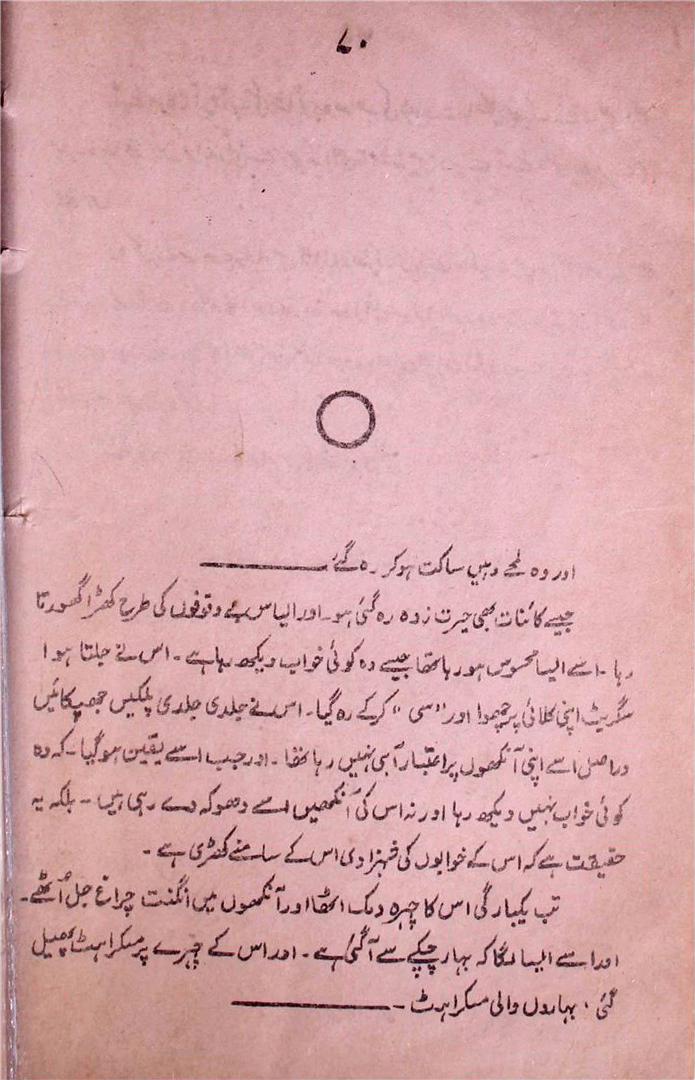 ۷۰
اور وہ لمحے وہیں ساکت ہو کر رہ گئے ————
جیسے کائنات بھی حیرت زدہ رہ گئی ہو۔ اور الیاس بے وقوفوں کی طرح کھڑا گھورتا
رہا۔ اسے ایسا محسوس ہو رہا تھا جیسے وہ کوئی خواب دیکھ رہا ہے۔ اس نے جلتا ہوا
سگریٹ اپنی کلائی پر چھوا اور "سی" کر کے رہ گیا۔ اس نے جلدی جلدی پلکیں جھپکائیں
دراصل اسے اپنی آنکھوں پر اعتبار آ ہی نہیں رہا تھا۔ اور جب اسے یقین ہو گیا۔ کہ وہ
کوئی خواب نہیں دیکھ رہا اور نہ اس کی آنکھیں اسے دھوکہ دے رہی ہیں۔ بلکہ یہ
حقیقت ہے کہ اس کے خوابوں کی شہزادی اس کے سامنے کھڑی ہے۔
تب یکبارگی اس کا چہرہ دمک اٹھا اور آنکھوں میں انگنت چراغ جل اُٹھے۔
اور اسے ایسا لگا کہ بہار چپکے سے آ گئی ہے۔ اور اس کے چہرے پر مسکراہٹ پھیل
گئی۔ بہاروں والی مسکراہٹ۔ ————